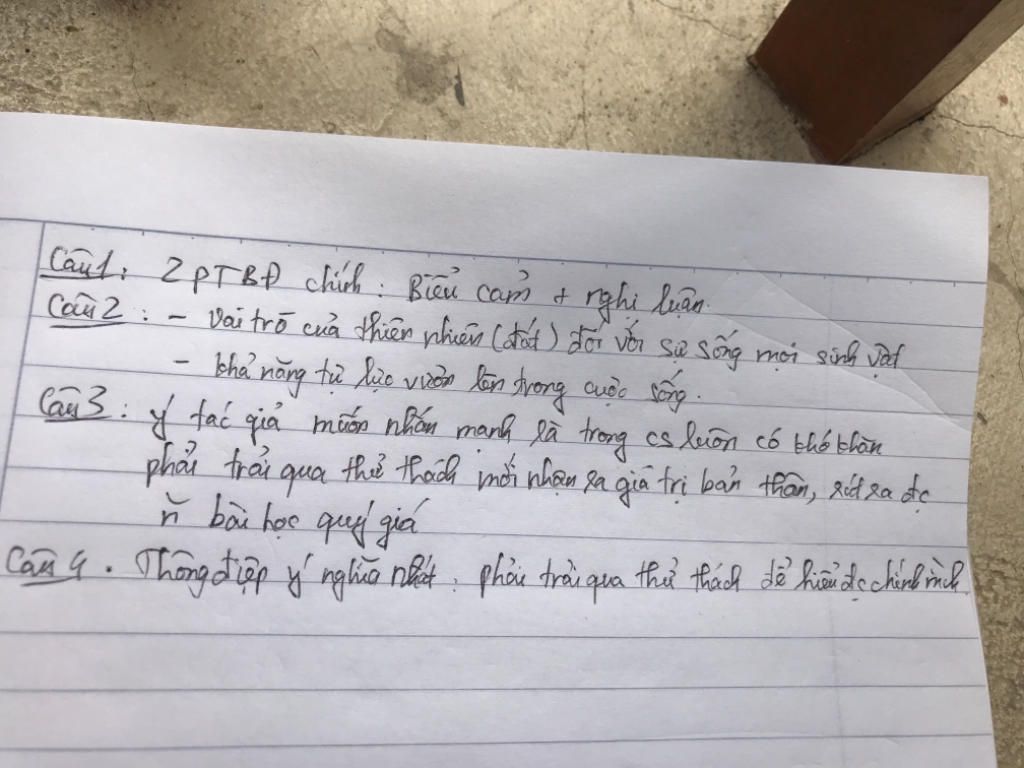 Câu 1: 2 PTBĐ chính: Biểu cảm + nghị luận.
Câu 2: - Vai trò của thiên nhiên (đất) đối với sự sống mọi sinh vật
- khả năng tự lực vươn lên trong cuộc sống.
Câu 3: ý tác giả muốn nhấn mạnh là trong cs luôn có khó khăn
phải trải qua thử thách mới nhận ra giá trị bản thân, rút ra đc
n~ bài học quý giá
Câu 4. Thông điệp ý nghĩa nhất: phải trải qua thử thách để hiểu đc chính mình